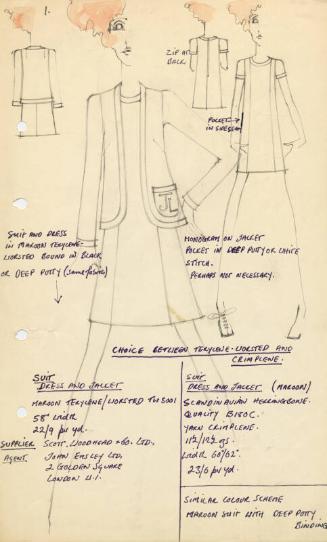 1.
ZIP AT
BACK.
POCKET
IN SIDESEAM
JL
SUIT AND DRESS
IN MAROON TERYLENE-
WORSTED BOUND IN BLACK
OR DEEP POTTY (same fabric)
MONOGRAM ON JACKET
POCKET IN DEEP POTTY OR WHITE
STITCH.
PERHAPS NOT NECESSARY.
CHOICE BETWEEN TERYLENE-WORSTED AND
CRIMPLENE.
SUIT
DRESS AND JACKET
MAROON TERYLENE/WORSTED TW 5001
58" WIDTH
22/9 per yd.
SUPPLIER SCOTT, WOODHEAD + CO. LTD.
AGENT. JOHN EMSLEY LTD,
2 GOLDEN SQUARE
LONDON W.1.
SUIT
DRESS AND JACKET (MAROON)
SCANDINAVIAN HERRINGBONE.
QUALITY B150C.
YARN CRIMPLENE.
11½/12½ ozs.
WIDTH 60/62".
23/6 per yd.
SIMILAR COLOUR SCHEME
MAROON SUIT WITH DEEP POTTY
BINDING